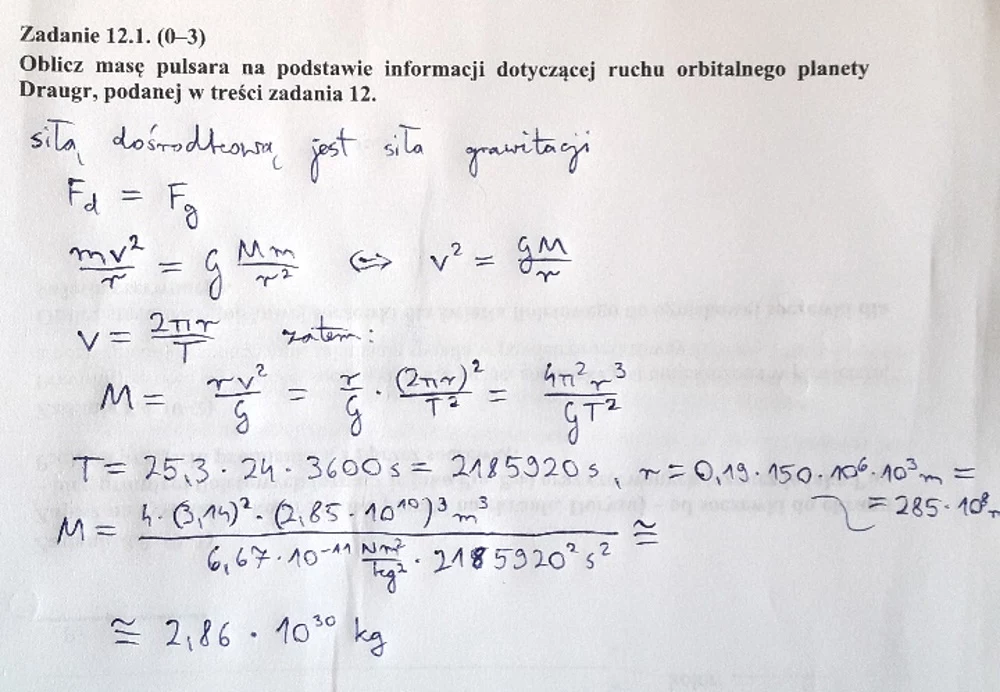 Zadanie 12.1. (0–3)
Oblicz masę pulsara na podstawie informacji dotyczącej ruchu orbitalnego planety
Draugr, podanej w treści zadania 12.
siłą dośrodkową jest siła grawitacji
F_d = F_g
mv²/r = G Mm/r² ⇔ v² = GM/r
v = 2πr/T zatem:
M = rv²/G = r/G (2πr)²/T² = 4π²r³/GT²
T = 25,3 · 24 · 3600 s = 2185920 s, r = 0,19 · 150 · 10⁶ · 10³ m =
= 285 · 10⁸ m
M = 4 · (3,14)² · (2,85 · 10¹⁰)³ m³ / 6,67 · 10⁻¹¹ Nm²/kg² · 2185920² s² ≅
≅ 2,86 · 10³⁰ kg